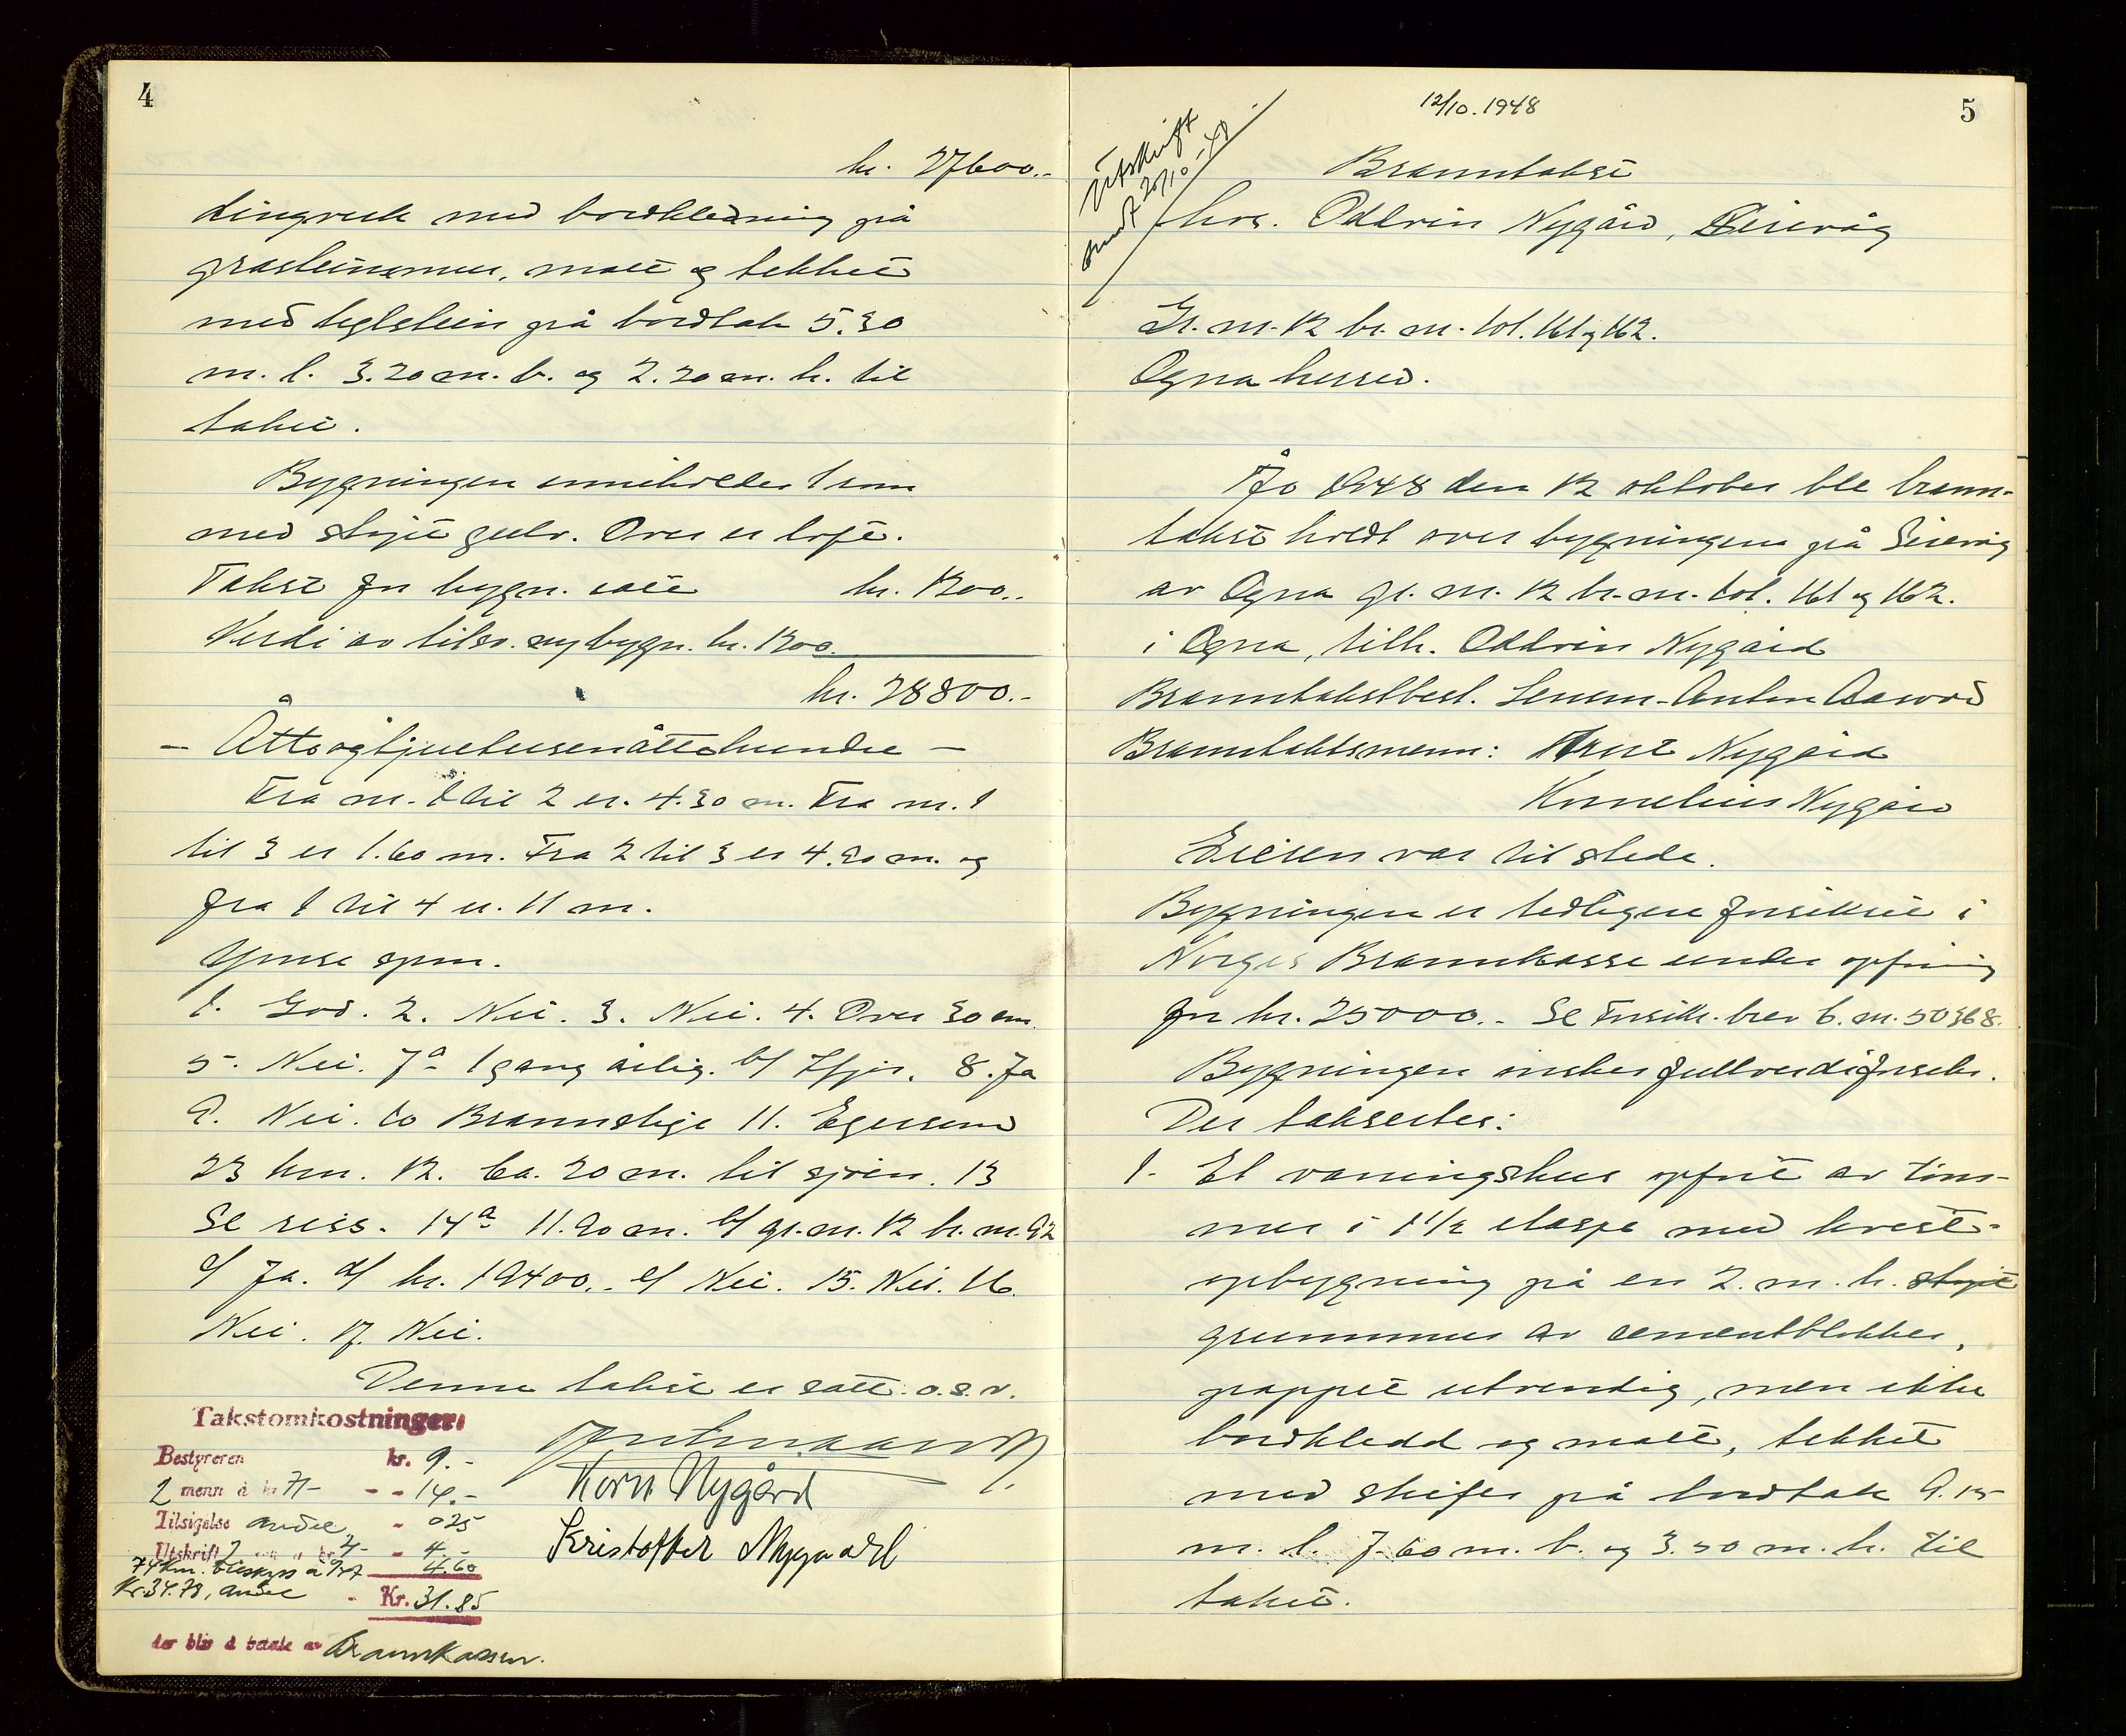 4
kr. 27600.-
bingverk med bordkledning på
grasteinsmur, malt og tekket
med teglstein på bordtak 5.30
m. l. 3.20 m. b. og 2.20 m. h. til
taket.
Bygningen inneholder 1 rom
med støpt gulv. Over er loft.
Takst for bygn. satt kr. 1200.-
Verdi av tilsv. nybygn. kr. 1200.
kr. 28800.-
- Åtteogtjuetusenåttehundre -
Fra nr. 1 til 2 er 4.30 m. Fra nr. 1
til 3 er 1.60 m. Fra 2 til 3 er 4.90 m. og
fra 1 til 4 er 11 m.
Ymse spm.
1. God. 2. Nei. 3. Nei. 4. Over 30 cm.
5. Nei. 7a 1 gang årlig. b/ 8. Ja
9. Nei. 10 Brannstige 11. Egersund
23 km. 12. Ca. 20 m. til sjøen. 13
Se riss. 14a 11.90 m. b/ gr. nr. 12 br. nr. 92
c/ Ja. d/ kr. 19400.- e/ Nei. 15. Nei. 16.
Nei. 17. Nei.
Denne takst er satt o.s.v.
Takstomkostninger:
Bestyreren kr. 9.-
2 menn à kr 7/- - - 14.-
Tilsigelse andel - 025
Utskrift 2 - 4.-
74 km. bilskyss à 4.60
Kr. 34.78, andel - Kr. 31.85
der blir å betale av Brannkassen.
Korn Nygård
Kristoffer Nygaard
12/10.1948
5
Utskrift
sendt 20/10 -48
Branntakst
hos. Oddvin Nygård, Sirevåg
Gr. nr. 12 br. nr. 101. 161 og 162.
Ogna herred.
År 1948 den 12 oktober ble brann-
takst holdt over bygningene på Sirevåg
av Ogna gr. nr. 12 br. nr. 101. 161 og 162.
i Ogna, tilh. Oddvin Nygård
Branntakstbest. Lensm. Anton Aasvold
Branntakstsmenn: Knut Nygård
Kornelius Nygård
Eieren var til stede.
Bygningen er tidligere forsikret i
Norges Brannkasse under opføring
for kr. 25000.- Se Forsikr. brev b. nr. 50368.
Bygningen ønskes fullverdiforsikr.
Der takseres:
1. Et vaningshus opført av tøm-
mer i 1 1/2 etasje med kvist-
opbygning på en 2. m. h. støpt
grunnmur av cementblokker,
pappet utvendig, men ikke
bordkledd og malt, tekket
med skifer på bordtak 9.15
m. l. 7.60 m. b. og 3.50 m. h. til
taket.